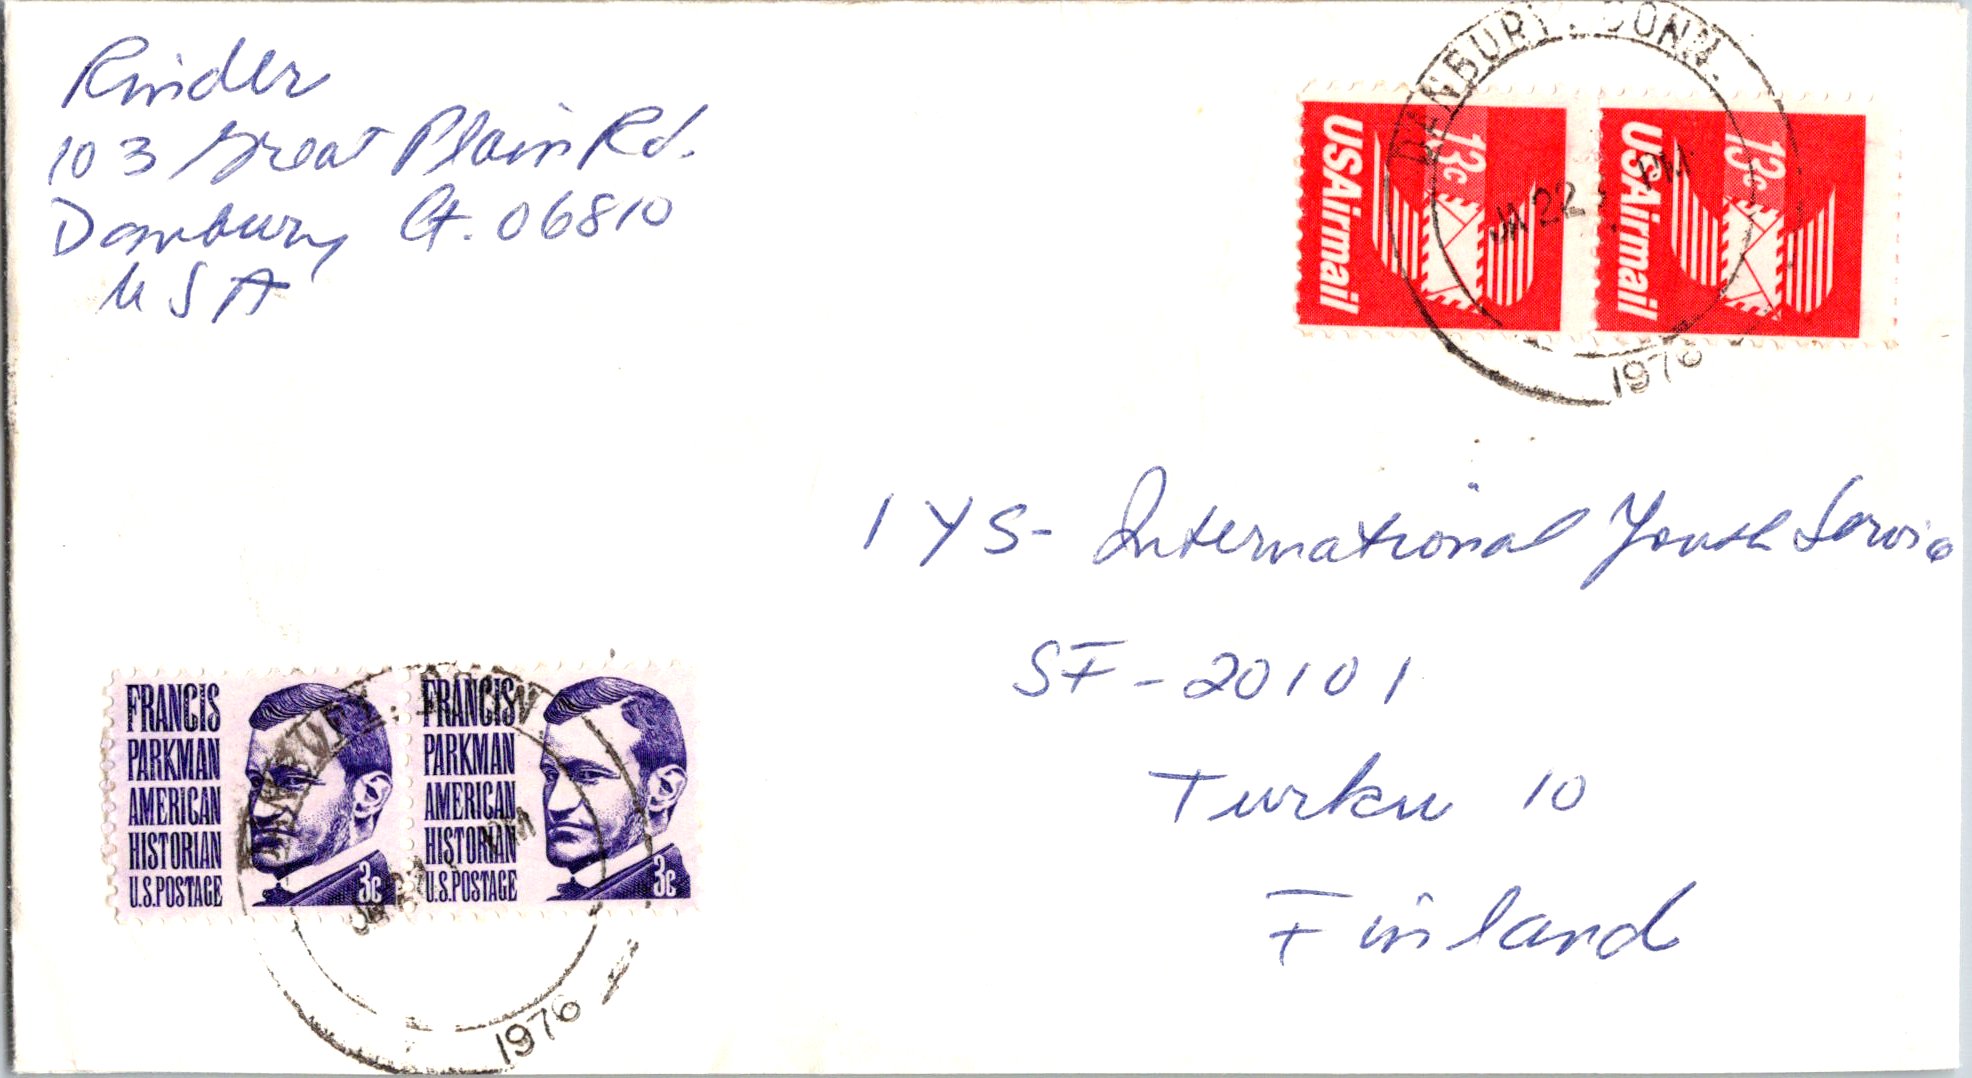 Rinder
103 Great Plain Rd.
Danbury Ct. 06810
USA
DANBURY, CONN.
JA 22 PM
1976
13c
USAirmail
13c
USAirmail
IYS - International Youth Service
SF - 20101
Turku 10
Finland
FRANCIS
PARKMAN
AMERICAN
HISTORIAN
U.S.POSTAGE
3c
FRANCIS
PARKMAN
AMERICAN
HISTORIAN
U.S.POSTAGE
3c
DANBURY, CONN
PM
1976